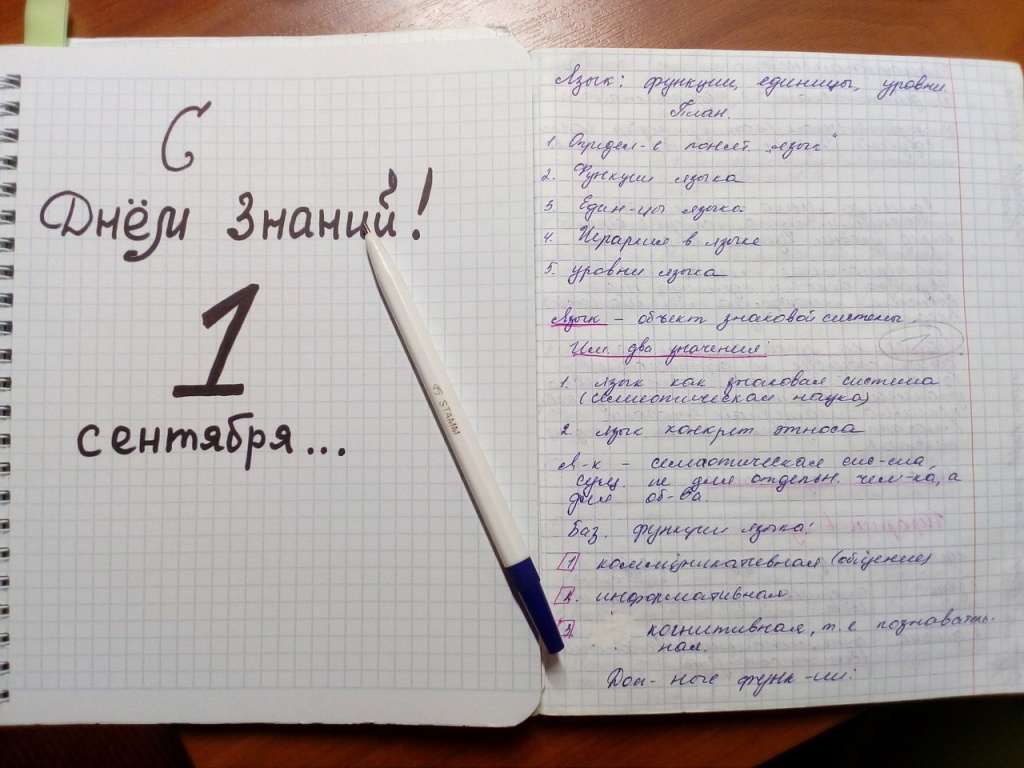 С
Днём Знаний!
1
сентября...
STAMM
Язык: функции, единицы, уровни
План.
1. Определ-е понят. „язык“
2. Функции языка
3. Един-цы языка
4. Иерархия в языке
5. уровни языка
Язык – объект знаковой системы.
Им. два значения:
1. язык как знаковая система
(семиотическая наука)
2. язык конкрет. этноса
Я-к – семиотическая сис-ма,
сущ. не для отдельн. чел-ка, а
для об-ва
Баз. функции языка:
1 коммуникативная (общение)
2. информативная
3 когнитивная, т.е познаватель-
ная.
Доп-ные функ-ции: